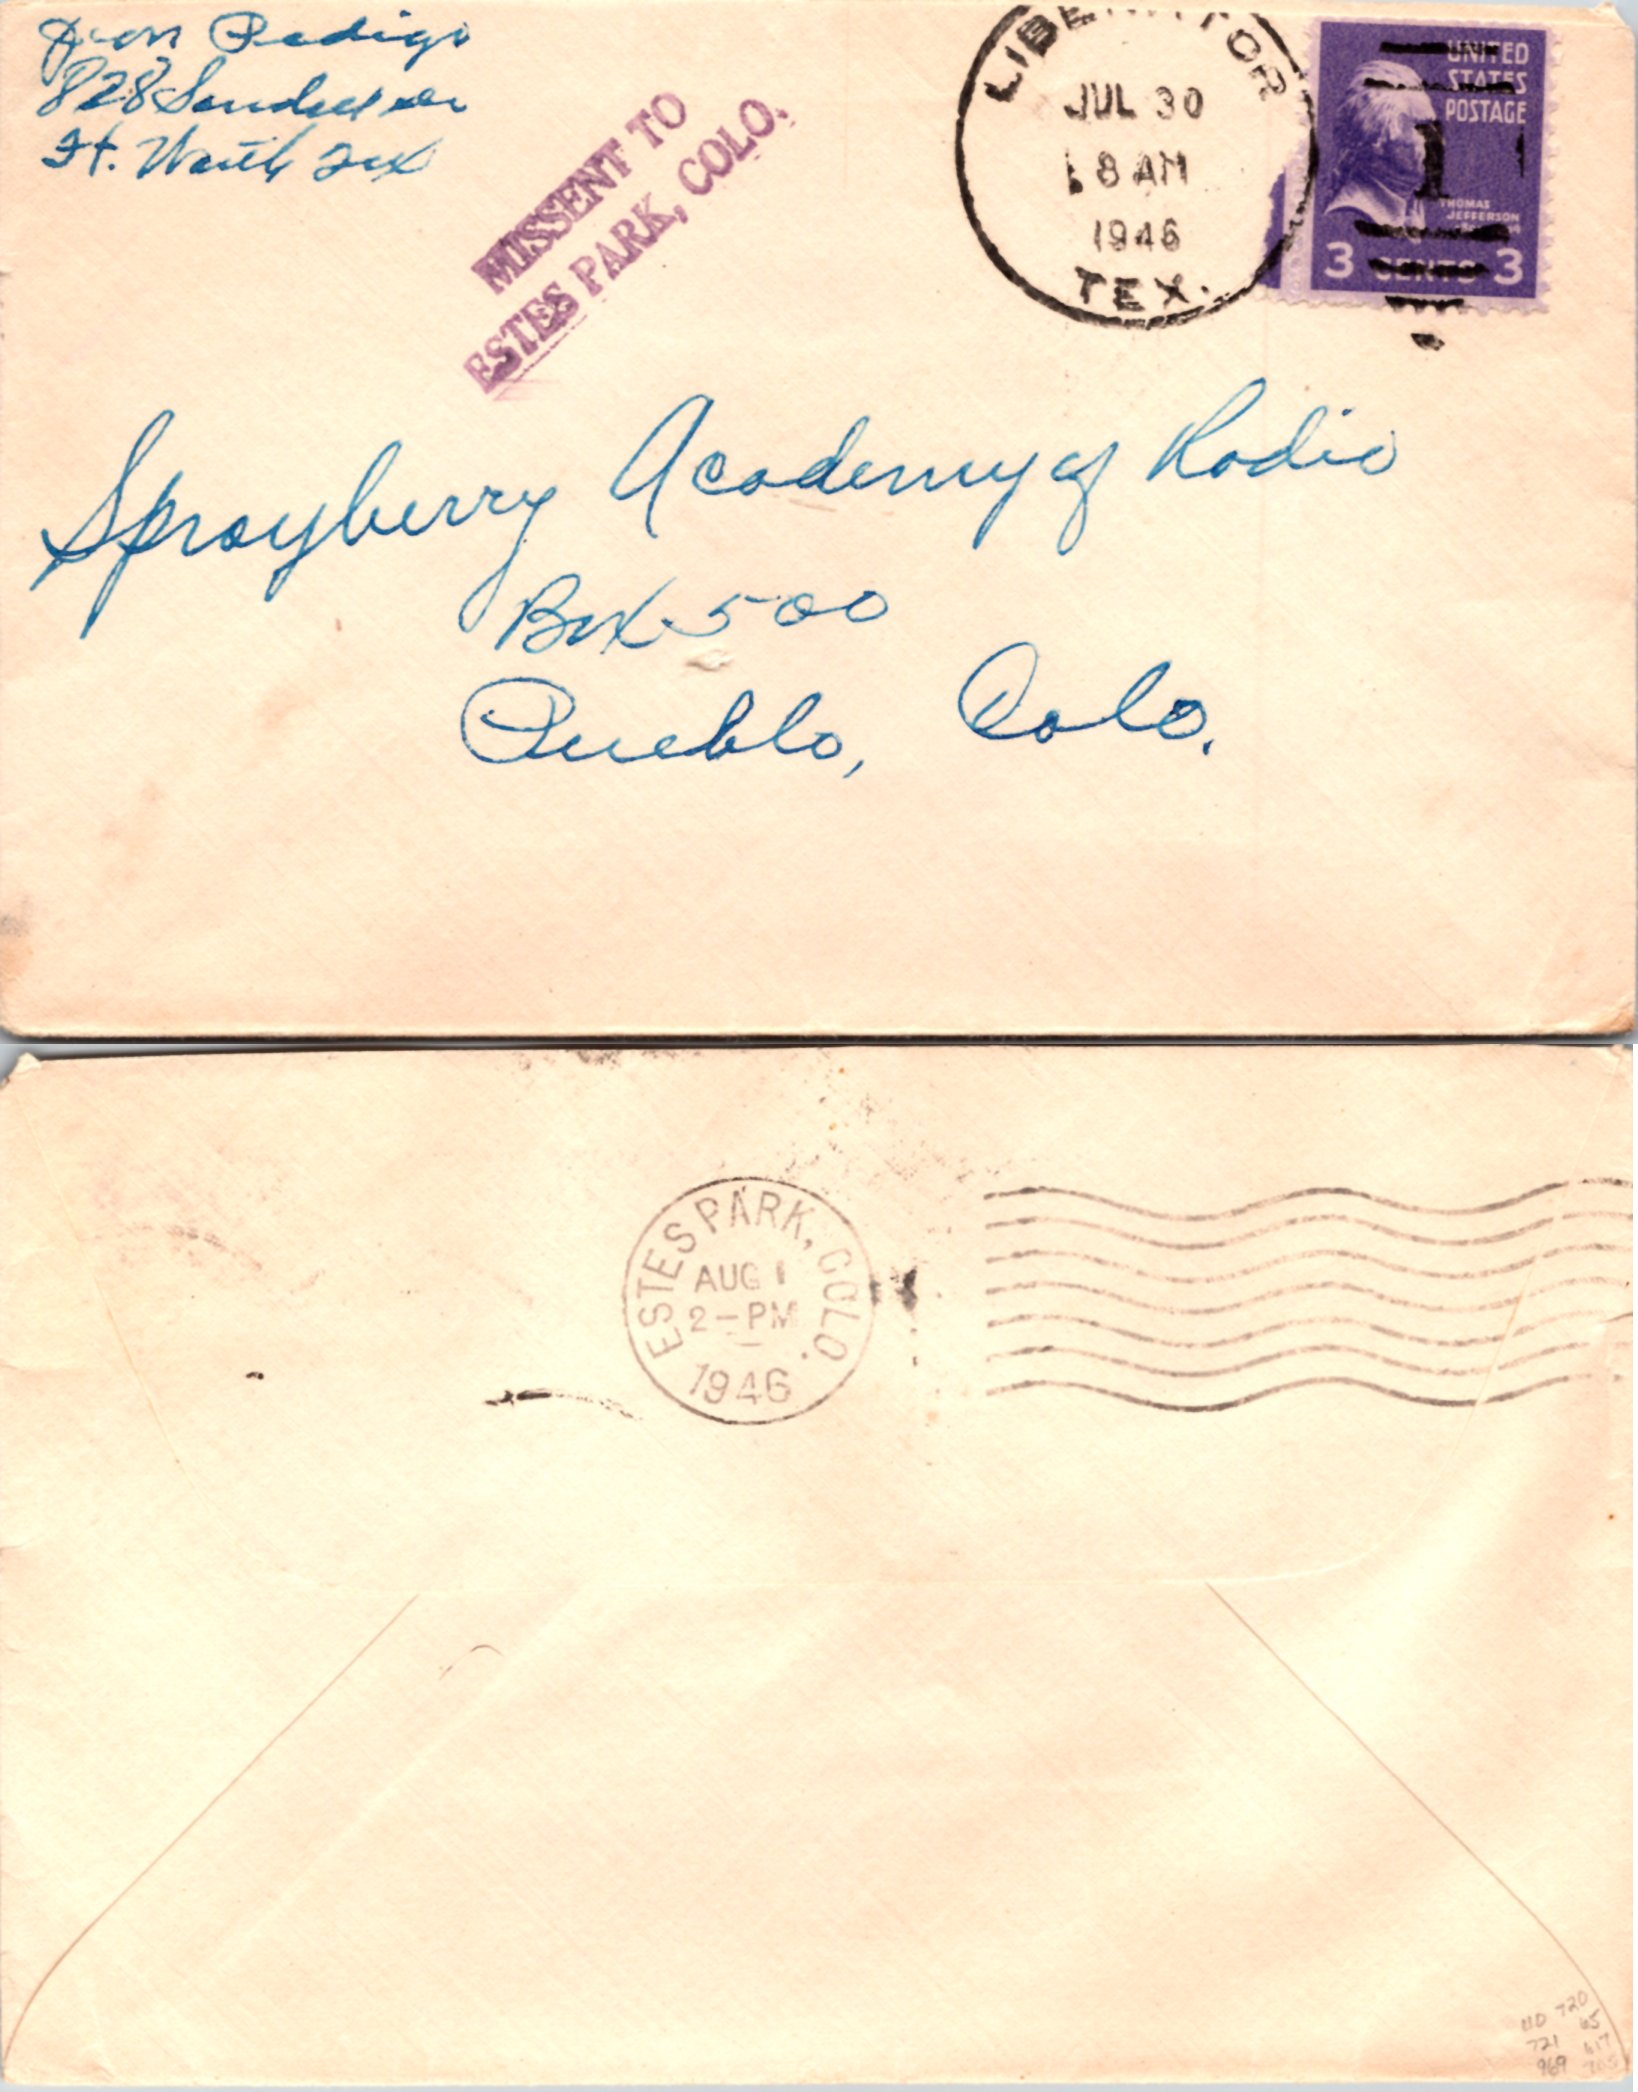 Pedigo
828
Ft. Worth Tex
MISSENT TO
ESTES PARK, COLO.
LIBERATOR
JUL 30
8 AM
1946
TEX.
UNITED
STATES
POSTAGE
1
THOMAS
JEFFERSON
3 CENTS 3
Sprayberry Academy of Radio
Box 500
Pueblo, Colo.
ESTES PARK, COLO.
AUG 1
2-PM
1946
110 720
65
721 617
969 705